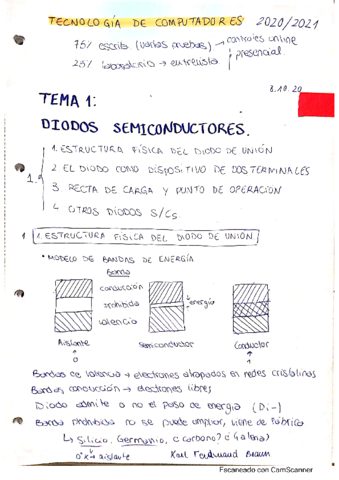 TECNOLOGÍA DE COMPUTADORES 2020/2021
75% escrito (varias pruebas) → controles online
presencial.
25% laboratorio → entrevista
8.10.20
TEMA 1:
DIODOS SEMICONDUCTORES.
1. ESTRUCTURA FÍSICA DEL DIODO DE UNIÓN
2 EL DIODO COMO DISPOSITIVO DE DOS TERMINALES
3 RECTA DE CARGA Y PUNTO DE OPERACIÓN
4 OTROS DIODOS S/Cs
1 1. ESTRUCTURA FÍSICA DEL DIODO DE UNIÓN
• MODELO DE BANDAS DE ENERGÍA
Banda
conducción
prohibida
energía
valencia
Aislante Semiconductor Conductor
0
Bandas de valencia → electrones atrapados en redes cristalinas
Bandas conducción → electrones libres
Diodo admite o no el paso de energía (Di-)
Banda prohibida no se puede ampliar, viene de fábrica
↳ Silicio, Germanio, ¿carbono? ó Galena)
aislante Karl Ferdinand Braun
Escaneado con CamScanner